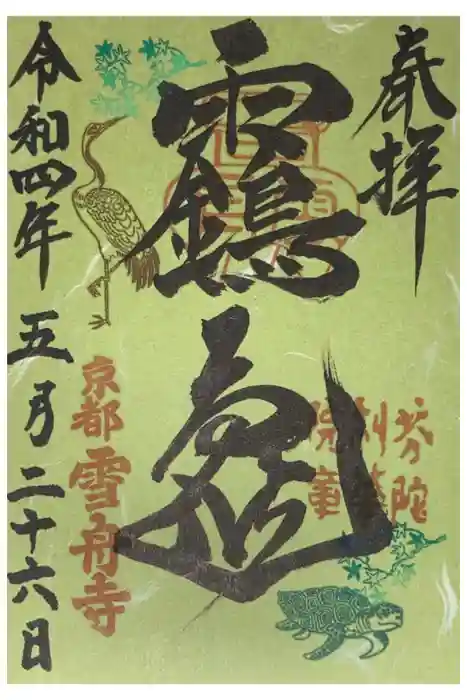 奉拝
靍亀
芬陀
利華
院章
京都雪舟寺
令和四年五月二十六日